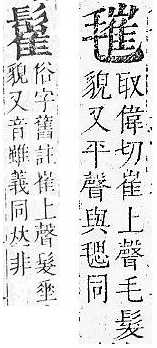 㲝
取偉切崔上聲毛髮
貌又平聲與毸同
俗字舊註崔上聲髮垂
貌又音雖義同𠀤非